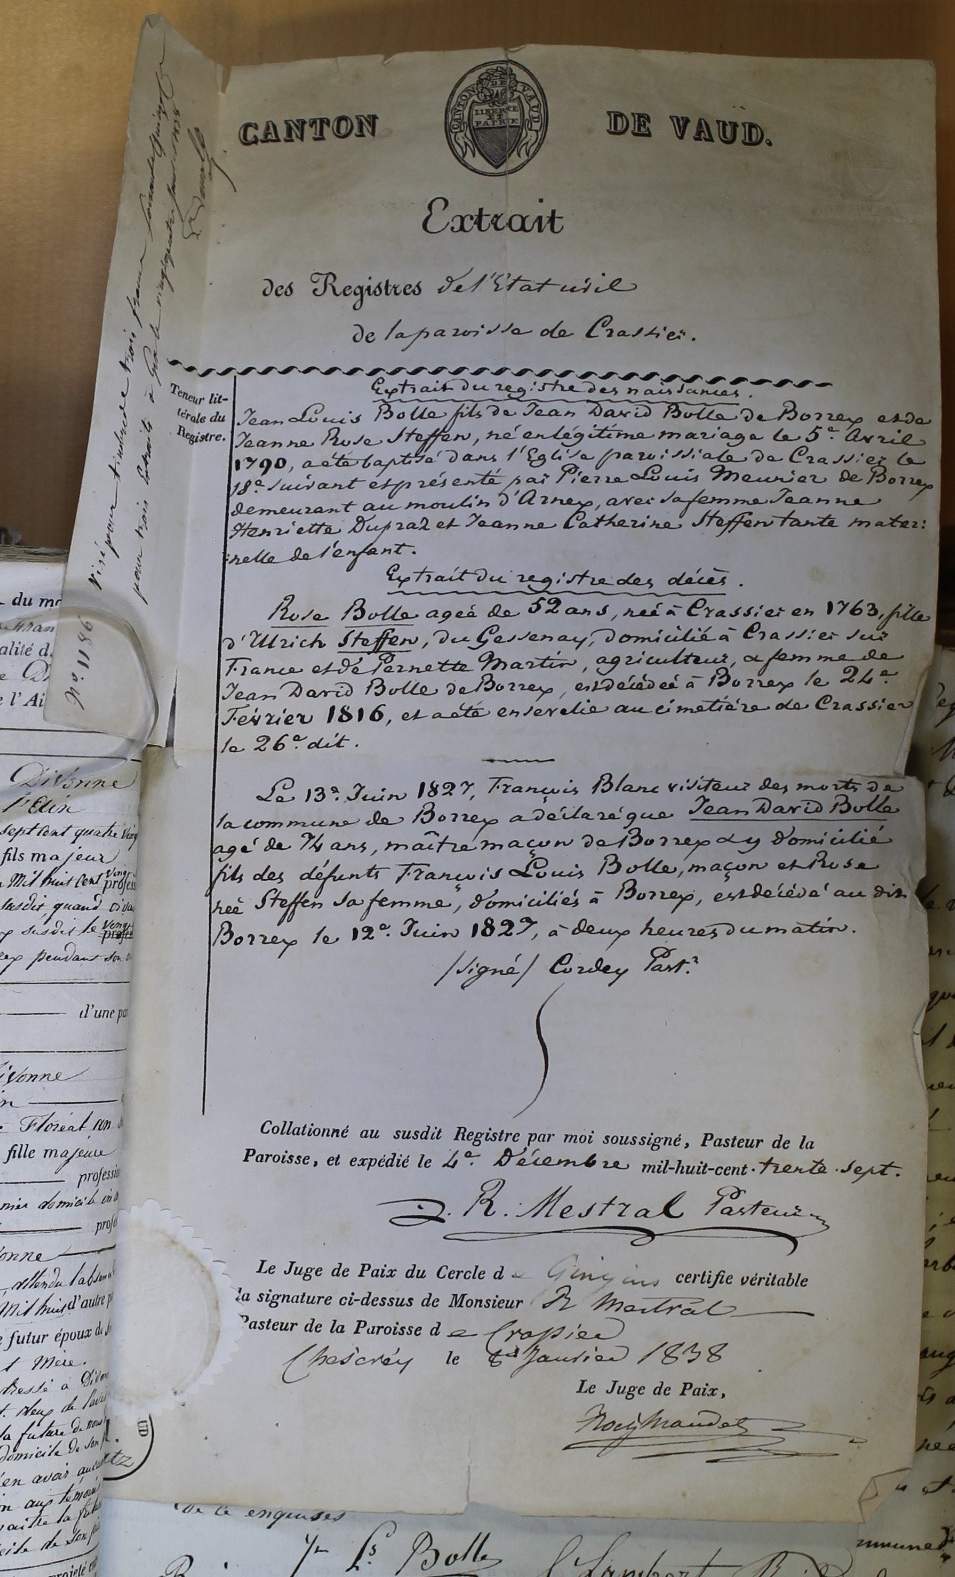 CANTON DE VAUD.
CANTON DE VAUD
LIBERTÉ
ET
PATRIE
Extrait
des Registres de l'Etat civil
de la paroisse de Crassier.
Teneur lit-
térale du
Registre.
Extrait du registre des naissances.
Jean Louis Bolle fils de Jean David Bolle de Borrex et de
Jeanne Rose Steffen, né en légitime mariage le 5e. Avril
1790, a été baptisé dans l'Eglise paroissiale de Crassier le
18e. suivant et présenté par Pierre Louis Meunier de Borrex
demeurant au moulin d'Arnex, avec sa femme Jeanne
Henriette Dupraz et Jeanne Catherine Steffen tante mater:
:nelle de l'enfant.
Extrait du registre des décès.
Rose Bolle ageé de 52 ans, neé à Crassier en 1763, fille
d'Ulrich Steffen, du Gessenay, domicilié à Crassier sur
France et de Pernette Martin, agriculteur, & femme de
Jean David Bolle de Borrex, est décédeé à Borrex le 24e.
Février 1816, et a été ensevelie au cimetière de Crassier
le 26e. dit.
Le 13e. Juin 1827, François Blanc visiteur des morts de
la commune de Borrex a déclaré que Jean David Bolle
agé de 74 ans, maître maçon de Borrex & y domicilié
fils des défunts François Louis Bolle, maçon et Rose
neé Steffen sa femme, domiciliés à Borrex, est décédé au dit
Borrex le 12e. Juin 1827, à deux heures du matin.
/signé/ Cordey Past.r
Collationné au susdit Registre par moi soussigné, Pasteur de la
Paroisse, et expédié le 4e. Décembre mil-huit-cent-trente-sept.
R. Mestral Pasteur
Le Juge de Paix du Cercle de Gingins certifie véritable
la signature ci-dessus de Monsieur R Mestral
Pasteur de la Paroisse de Crassier
le 8 Janvier 1838
Le Juge de Paix,
Visé pour timbre
No. 1186
Divonne
l'Ain
sept cent quatre
fils majeur
mil huit cent
susdit quand
susdit le
pendant son
d'une pa
Floréal
fille majeure
profession
domicile
d'autre p
futur époux
Mère.
la future
domicile de son
Ls Bolle
Lambert